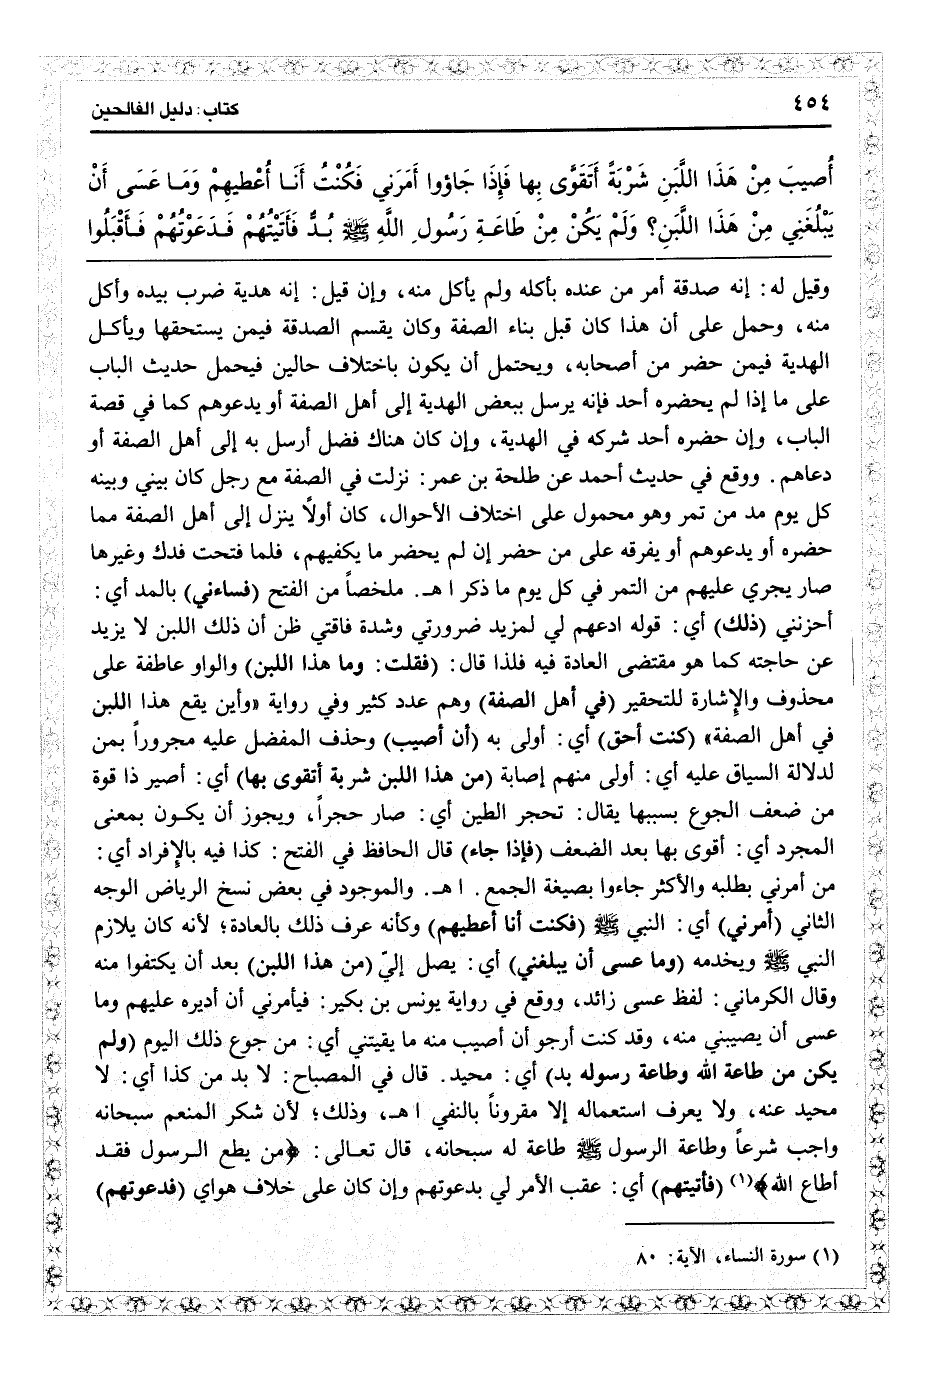 ٤٥٤
كتاب: دليل الفالحين
أُصيبَ مِنْ هَذَا اللَّبَنِ شَرْبَةً أَتَقَوَّى بِها فَإِذَا جَاؤوا أَمَرَني فَكُنْتُ أَنَا أُعْطيهِمْ وَمَا عَسَى أَنْ
يَبْلُغَنِي مِنْ هَذَا اللَّبَنِ؟ وَلَمْ يَكُنْ مِنْ طَاعَةِ رَسُولِ اللَّهِ ﷺ بُدٌّ فَأَتَيْتُهُمْ فَدَعَوْتُهُمْ فَأَقْبَلُوا
وقيل له: إنه صدقة أمر من عنده بأكله ولم يأكل منه، وإن قيل: إنه هدية ضرب بيده وأكل
منه، وحمل على أن هذا كان قبل بناء الصفة وكان يقسم الصدقة فيمن يستحقها ويأكل
الهدية فيمن حضر من أصحابه، ويحتمل أن يكون باختلاف حالين فيحمل حديث الباب
على ما إذا لم يحضره أحد فإنه يرسل ببعض الهدية إلى أهل الصفة أو يدعوهم كما في قصة
الباب، وإن حضره أحد شركه في الهدية، وإن كان هناك فضل أرسل به إلى أهل الصفة أو
دعاهم. ووقع في حديث أحمد عن طلحة بن عمر: نزلت في الصفة مع رجل كان بيني وبينه
كل يوم مد من تمر وهو محمول على اختلاف الأحوال، كان أولاً ينزل إلى أهل الصفة مما
حضره أو يدعوهم أو يفرقه على من حضر إن لم يحضر ما يكفيهم، فلما فتحت فدك وغيرها
صار يجري عليهم من التمر في كل يوم ما ذكر ا هـ. ملخصاً من الفتح (فساءني) بالمد أي:
أحزنني (ذلك) أي: قوله ادعهم لي لمزيد ضرورتي وشدة فاقتي ظن أن ذلك اللبن لا يزيد
عن حاجته كما هو مقتضى العادة فيه فلذا قال: (فقلت: وما هذا اللبن) والواو عاطفة على
محذوف والإشارة للتحقير (في أهل الصفة) وهم عدد كثير وفي رواية «وأين يقع هذا اللبن
في أهل الصفة» (كنت أحق) أي: أولى به (أن أصيب) وحذف المفضل عليه مجروراً بمن
لدلالة السياق عليه أي: أولى منهم إصابة (من هذا اللبن شربة أتقوى بها) أي: أصير ذا قوة
من ضعف الجوع بسببها يقال: تحجر الطين أي: صار حجراً، ويجوز أن يكون بمعنى
المجرد أي: أقوى بها بعد الضعف (فإذا جاء) قال الحافظ في الفتح: كذا فيه بالإفراد أي:
من أمرني بطلبه والأكثر جاءوا بصيغة الجمع. ا هـ. والموجود في بعض نسخ الرياض الوجه
الثاني (أمرني) أي: النبي ﷺ (فكنت أنا أعطيهم) وكأنه عرف ذلك بالعادة؛ لأنه كان يلازم
النبي ﷺ ويخدمه (وما عسى أن يبلغني) أي: يصل إليّ (من هذا اللبن) بعد أن يكتفوا منه
وقال الكرماني: لفظ عسى زائد، ووقع في رواية يونس بن بكير: فيأمرني أن أديره عليهم وما
عسى أن يصيبني منه، وقد كنت أرجو أن أصيب منه ما يقيتني أي: من جوع ذلك اليوم (ولم
يكن من طاعة الله وطاعة رسوله بد) أي: محيد. قال في المصباح: لا بد من كذا أي: لا
محيد عنه، ولا يعرف استعماله إلا مقروناً بالنفي ا هـ، وذلك؛ لأن شكر المنعم سبحانه
واجب شرعاً وطاعة الرسول ﷺ طاعة له سبحانه، قال تعالى: ﴿من يطع الرسول فقد
أطاع الله﴾(١) (فأتيتهم) أي: عقب الأمر لي بدعوتهم وإن كان على خلاف هواي (فدعوتهم)
(١) سورة النساء، الآية: ٨٠